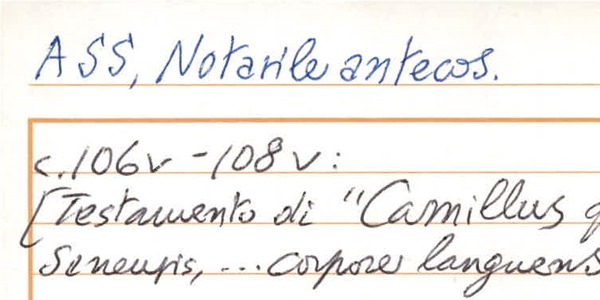 ASS, Notarile antecos.
c. 106v - 108v:
[Testamento di "Camillus q
Senensis, ... corpore languens